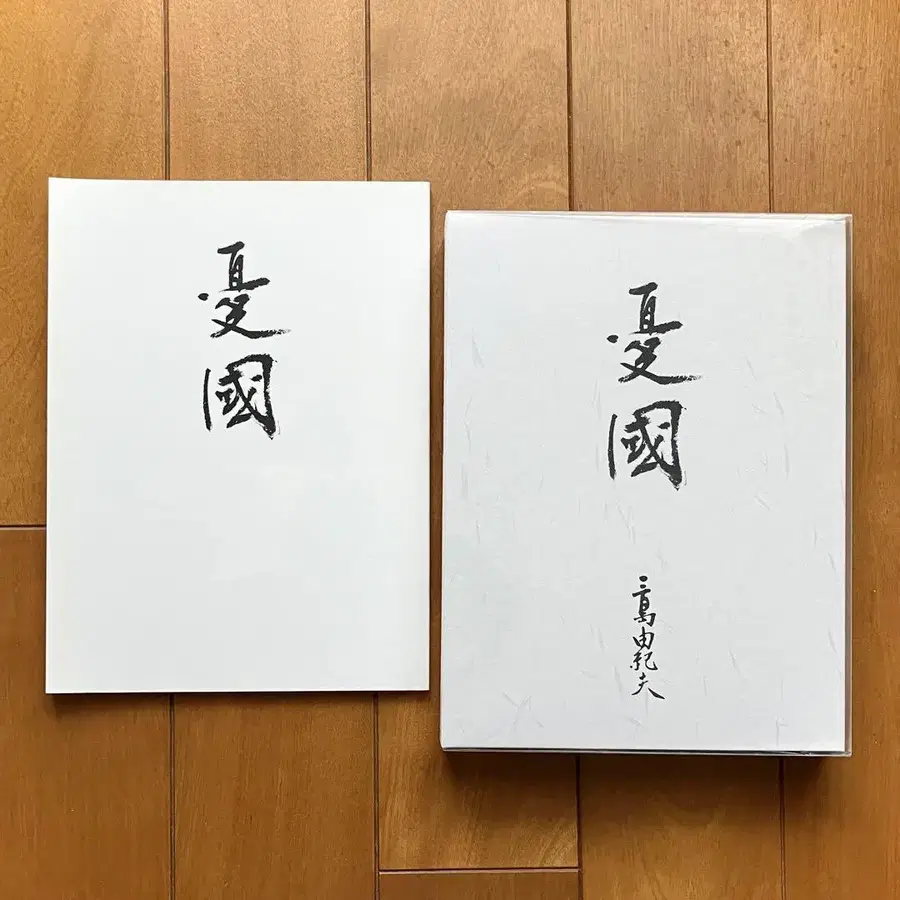 憂國
憂國
三島由紀夫